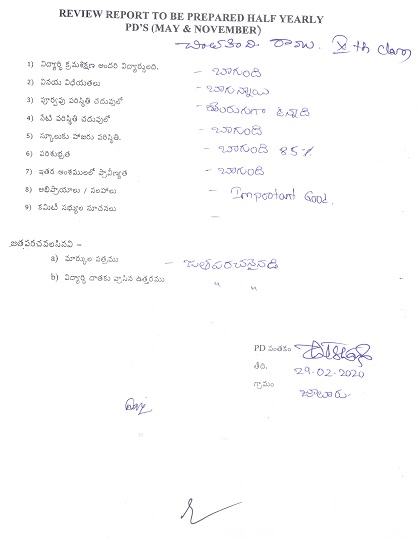 REVIEW REPORT TO BE PREPARED HALF YEARLY
PD'S (MAY & NOVEMBER)
రాము. Xth class
1) విద్యార్థి క్రమశిక్షణ అందరి విద్యార్థులది. - బాగుంది
2) వినయ విధేయతలు - బాగున్నాయి
3) పూర్వపు పరిస్థితి చదువులో - మెరుగుగా ఉన్నాది
4) నేటి పరిస్థితి చదువులో - బాగుంది
5) స్కూలుకు హాజరు పరిస్థితి. - బాగుంది 85%
6) పరిశుభ్రత - బాగుంది
7) ఇతర అంశములలో ప్రావీణ్యత - బాగుంది
8) అభిప్రాయాలు / సలహాలు - Important Good.
9) కమిటీ సభ్యుల సూచనలు
జతపరచవలసినవి –
a) మార్కుల పత్రము - జతపరచనైనది
b) విద్యార్థి దాతకు వ్రాసిన ఉత్తరము " "
PD సంతకం
తేది. 29-02-2020
గ్రామం జాలూరు.